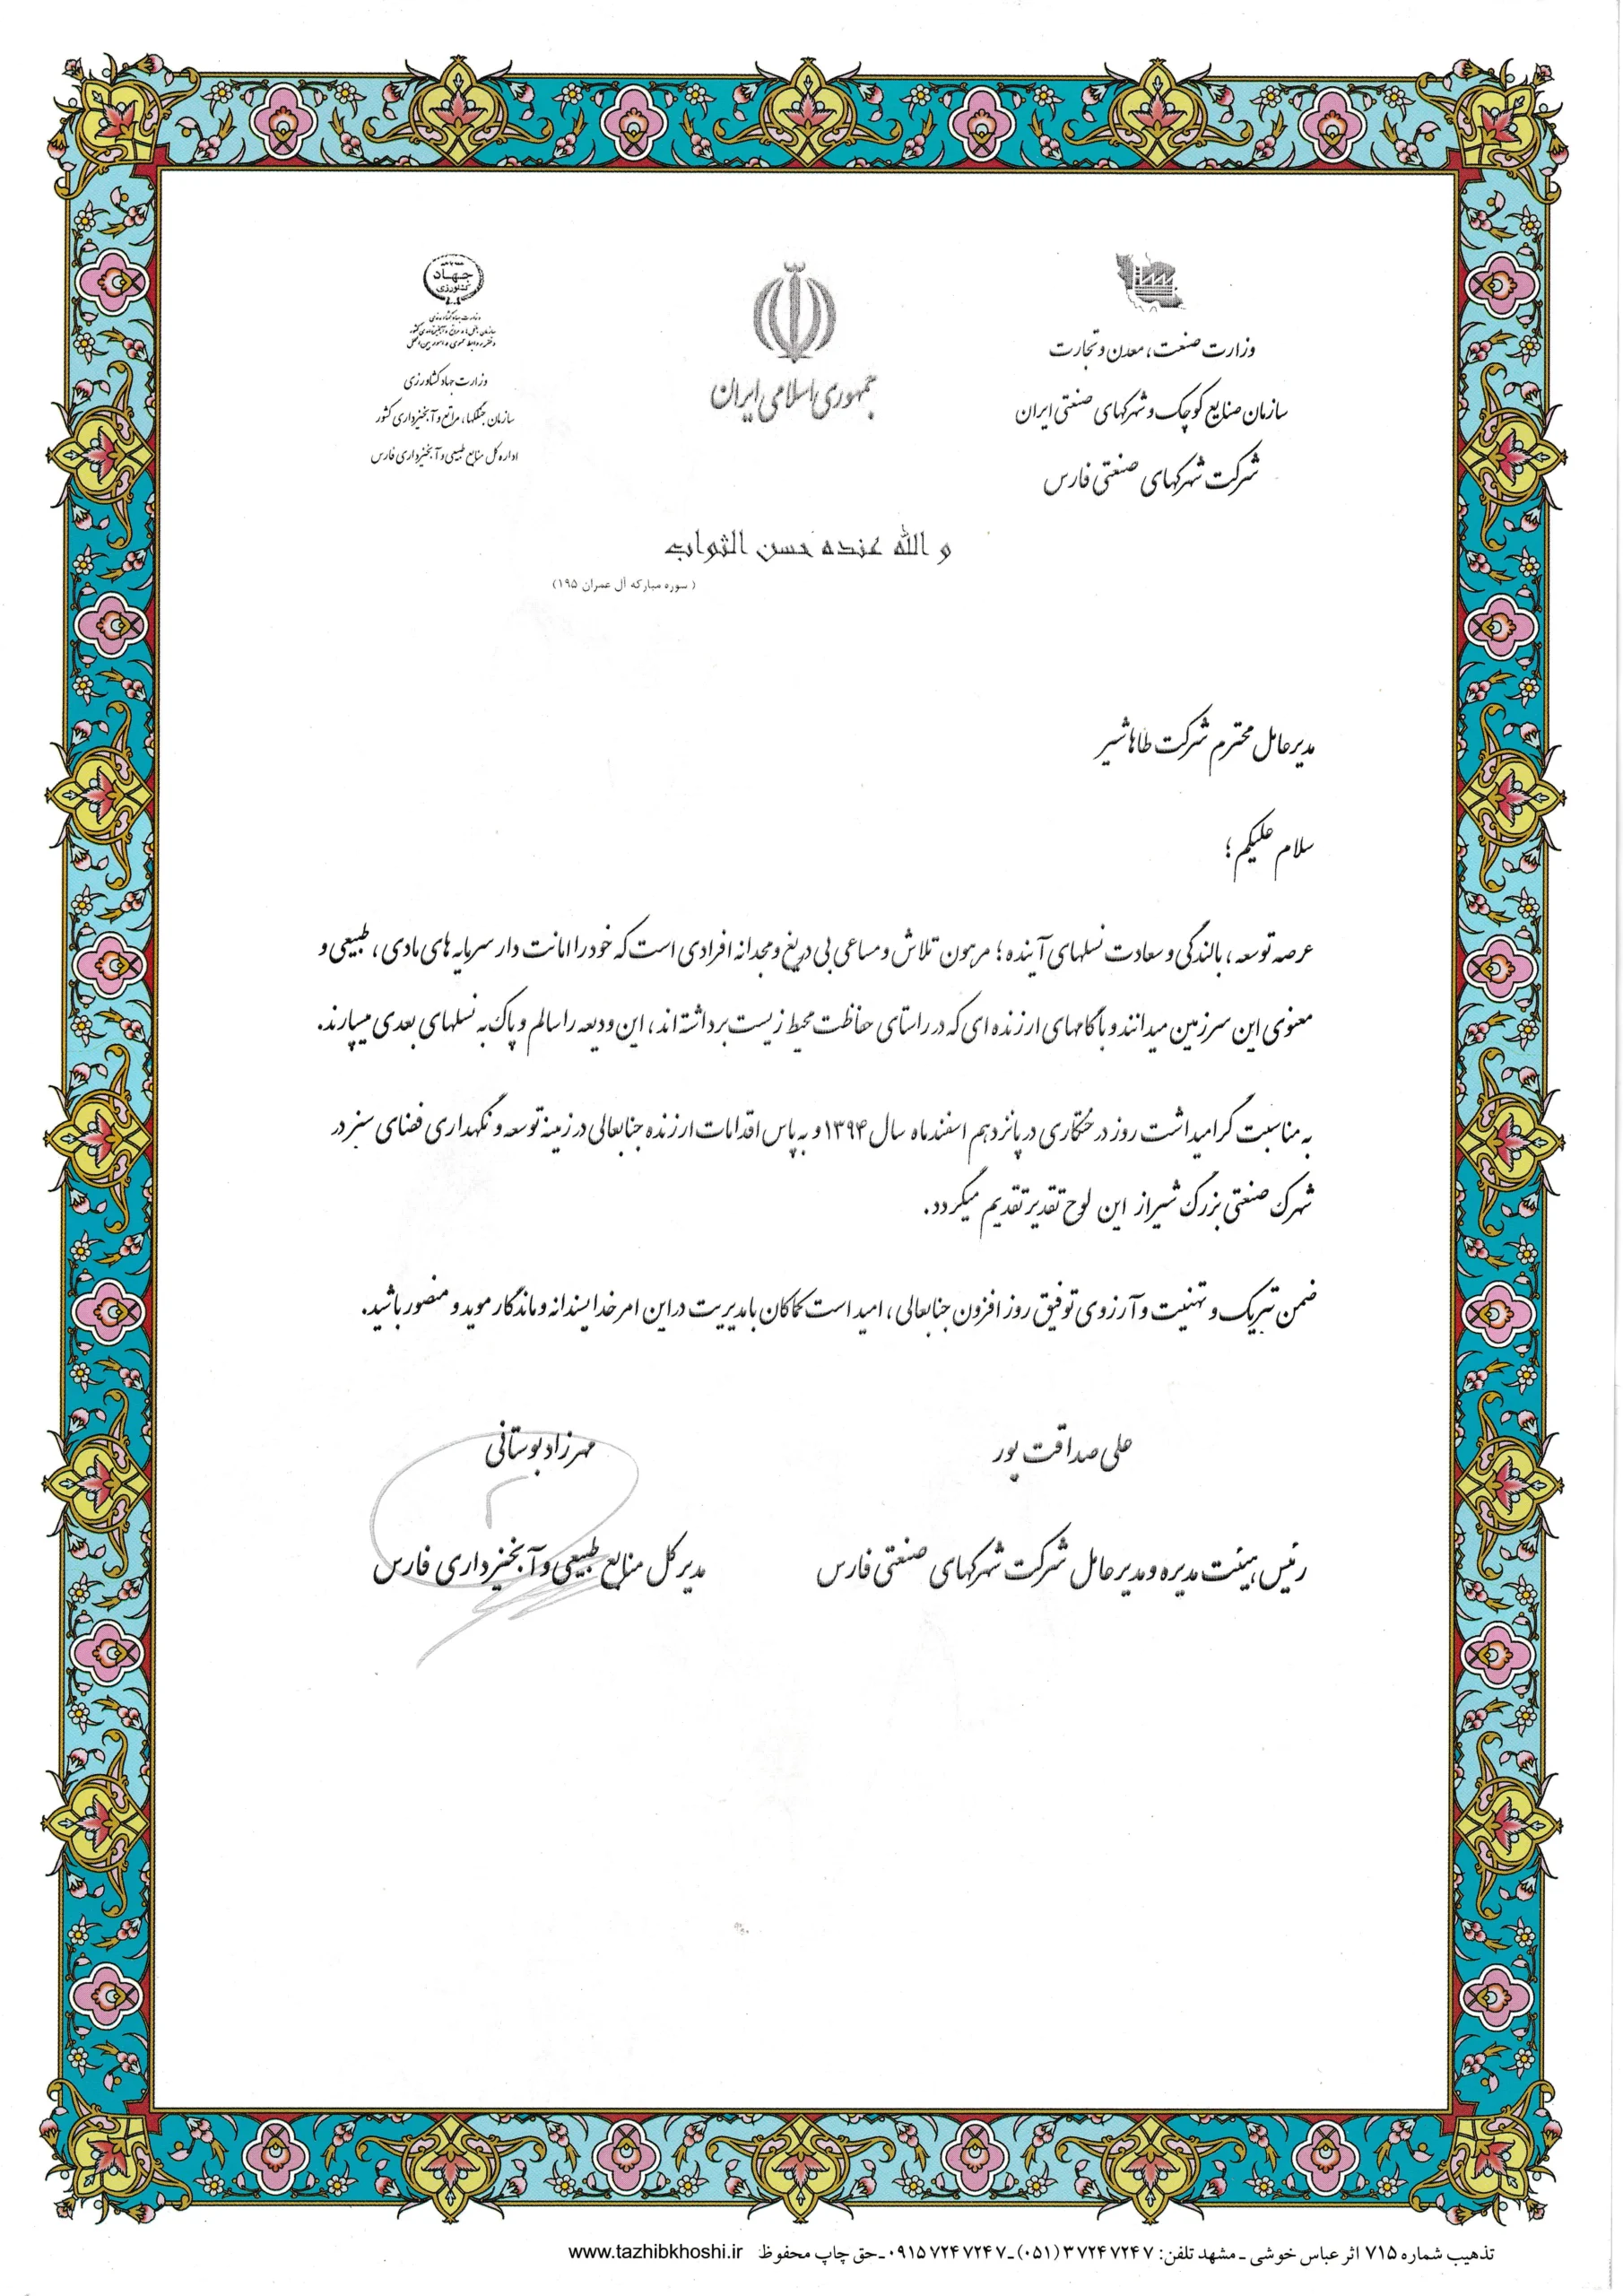 وزارت صنعت، معدن و تجارت
سازمان صنایع کوچک و شهرکهای صنعتی ایران
شرکت شهرکهای صنعتی فارس
جمهوری اسلامی ایران
جهاد
کشاورزی
وزارت جهاد کشاورزی
سازمان جنگلها، مراتع و آبخیزداری کشور
وزارت جهاد کشاورزی
سازمان جنگلها، مراتع و آبخیزداری کشور
اداره کل منابع طبیعی و آبخیزداری فارس
و الله عنده حسن الثواب
( سوره مبارکه آل عمران ۱۹۵)
مدیرعامل محترم شرکت طاها شیر
سلام علیکم؛
عرصه توسعه، بالندگی و سعادت نسلهای آینده؛ مرهون تلاش و مساعی بی دریغ و مجدانه افرادی است که خود را امانت دار سرمایه های مادی، طبیعی و
معنوی این سرزمین میدانند و با گامهای ارزنده ای که در راستای حفاظت محیط زیست برداشته اند، این ودیعه را سالم و پاک به نسلهای بعدی میسپارند.
به مناسبت گرامیداشت روز درختکاری در پانزدهم اسفندماه سال ۱۳۹۴ و به پاس اقدامات ارزنده جنابعالی در زمینه توسعه و نگهداری فضای سبز در
شهرک صنعتی بزرگ شیراز این لوح تقدیر تقدیم میگردد.
ضمن تبریک و تهنیت و آرزوی توفیق روز افزون جنابعالی، امید است کماکان با مدیریت در این امر خدا پسندانه و ماندگار موید و منصور باشید.
علی صداقت پور
مهرزاد بوستانی
رئیس هیئت مدیره و مدیرعامل شرکت شهرکهای صنعتی فارس
مدیرکل منابع طبیعی و آبخیزداری فارس
تذهیب شماره ۷۱۵ اثر عباس خوشی ـ مشهد تلفن: ۳۷۲۴۷۲۴۷ (۰۵۱) ـ ۰۹۱۵۷۲۴۷۲۴۷ ـ حق چاپ محفوظ www.tazhibkhoshi.ir